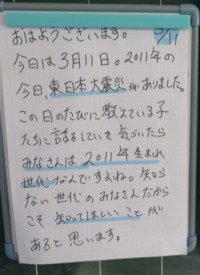 おはようございます。 3/11
今日は3月11日。2011年の
今日、東日本大震災がありました。
この日のたびに教えている子
たちに話をしていて気づいたら
みなさんは2011年生まれ
世代なんですよね。知ら
ない世代のみなさんだから
こそ知ってほしいことが
あると思います。